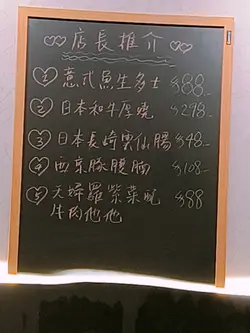 店長推介
1 意式魚生多士 $88-
2 日本和牛厚燒 $298-
3 日本長崎雲仙腸 $48-
4 西京豚腹腩 $108-
5 天婦羅紫菜配 $88
牛肉他他